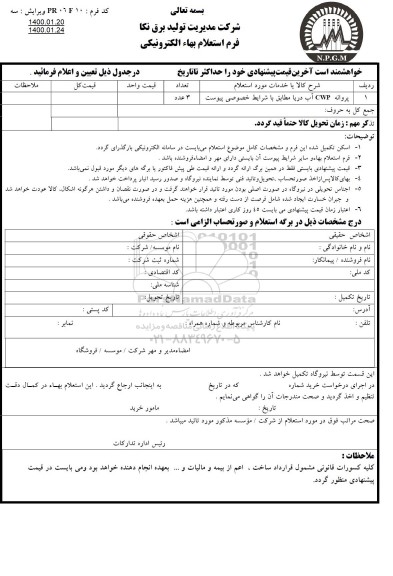 بسمه تعالی
کد فرم : PR ۰۶ F ۱۰ ویرایش : سه
1400.01.20
1400.01.24
شرکت مدیریت تولید برق نکا
فرم استعلام بهاء الکترونیکی
N.P.G.M
خواهشمند است آخرین قیمت پیشنهادی خود را حداکثر تا تاریخ درجدول ذیل تعیین و اعلام فرمائید .
ردیف شرح کالا یا خدمات مورد استعلام تعداد قیمت واحد قیمت کل ملاحظات
۱ پروانه CWP آب دریا مطابق با شرایط خصوصی پیوست ۳ عدد
جمع کل به حروف:
تذکر مهم : زمان تحویل کالا حتماً قید گردد.
توضیحات:
۱- اسکن تکمیل شده این فرم و مشخصات کامل موضوع استعلام می‌بایست در سامانه الکترونیکی بارگذاری گردد.
۲- فرم استعلام بهاءو سایر شرایط پیوست آن بایستی دارای مهر و امضاءفروشنده باشد .
۳- قیمت پیشنهادی بایستی فقط در همین برگ ارائه گردد و ارائه قیمت طی پیش فاکتور یا برگه های دیگر مورد قبول نمی‌باشد.
۴- بهای‌کالاپس‌ازاخذ صورتحساب ،تحویل‌وتائید فنی توسط نماینده نیروگاه و صدور رسید انبار پرداخت خواهد شد .
۵- اجناس تحویلی در نیروگاه در صورت اصلی بودن مورد تائید قرار خواهند گرفت و در صورت نقصان و داشتن هرگونه اشکال، کالا عودت خواهد شد
و جبران خسارت ایجاد شده شامل فرصت از دست رفته و همچنین هزینه حمل بعهده فروشنده می‌باشد .
۶- اعتبار زمان قیمت پیشنهادی می بایست ۴۵ روز کاری اعتبار داشته باشد.
درج مشخصات ذیل در برگه استعلام و صورتحساب الزامی است :
اشخاص حقیقی اشخاص حقوقی
نام و نام خانوادگی : نام موسسه/ شرکت :
نام فروشنده / پیمانکار: شماره ثبت شرکت :
کد ملی: کد اقتصادی:
شناسه ملی:
تاریخ تکمیل : تاریخ تحویل:
آدرس: کد پستی :
تلفن : نام کارشناس مربوطه و شماره همراه : نمابر :
ParsNamadData
۰۲۱-۸۸۳۴۹۶۷۰-۵
امضاءمدیر و مهر شرکت / موسسه / فروشگاه
این قسمت توسط نیروگاه تکمیل خواهد شد .
در اجرای درخواست خرید شماره که در تاریخ به اینجانب ارجاع گردید . این استعلام بهاء در کمال دقت
تنظیم و اخذ گردید و صحت مندرجات آن را گواهی می‌نمایم .
تاریخ : مامور خرید
صحت مراتب فوق در مورد استعلام از شرکت / مؤسسه مذکور مورد تائید میباشد .
رئیس اداره تدارکات
ملاحظات :
کلیه کسورات قانونی مشمول قرارداد ساخت ، اعم از بیمه و مالیات و ... بعهده انجام دهنده خواهد بود ومی بایست در قیمت
پیشنهادی منظور گردد.